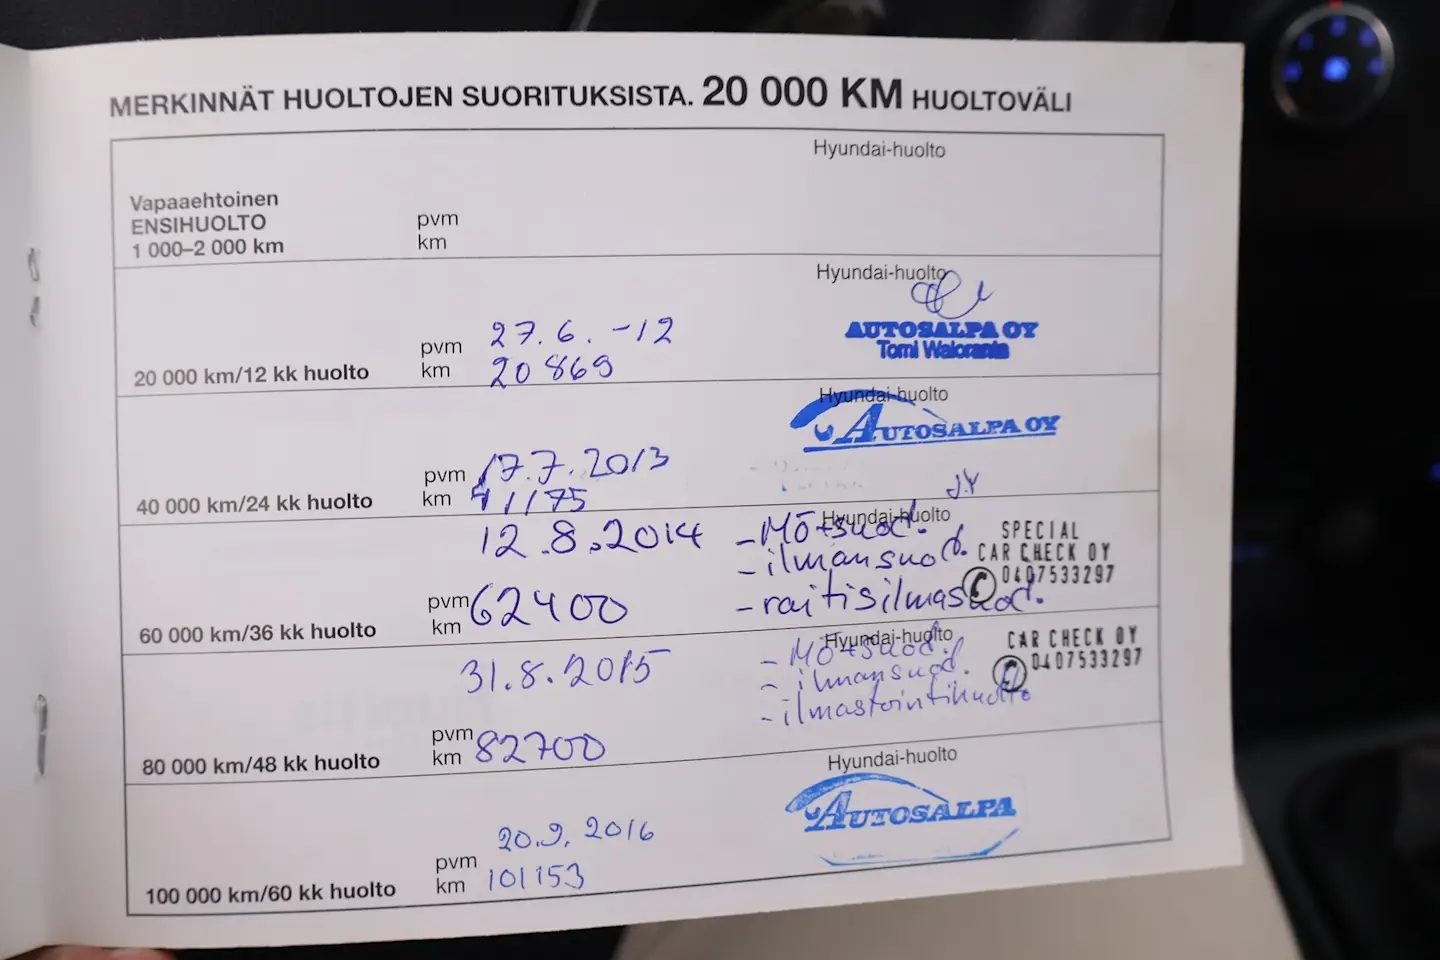 MERKINNÄT HUOLTOJEN SUORITUKSISTA. 20 000 KM HUOLTOVÄLI
Hyundai-huolto
Vapaaehtoinen
ENSIHUOLTO
1 000–2 000 km
pvm
km
Hyundai-huolto
AUTOSALPA OY
Tomi
20 000 km/12 kk huolto
pvm 27.6. -12
km 20 869
Hyundai-huolto
AUTOSALPA OY
40 000 km/24 kk huolto
pvm 17.7.2013
km 41175
J.Y
Hyundai-huolto
12.8.2014
- Mö+suod.
- ilmansuod.
- raitisilmasuod.
SPECIAL
CAR CHECK OY
0407533297
60 000 km/36 kk huolto
pvm
km 62400
Hyundai-huolto
31.8.2015
- Mö+suod.
- ilmansuod.
- ilmastointihuolto
CAR CHECK OY
0407533297
80 000 km/48 kk huolto
pvm
km 82700
Hyundai-huolto
AUTOSALPA
100 000 km/60 kk huolto
pvm 20.9.2016
km 101153